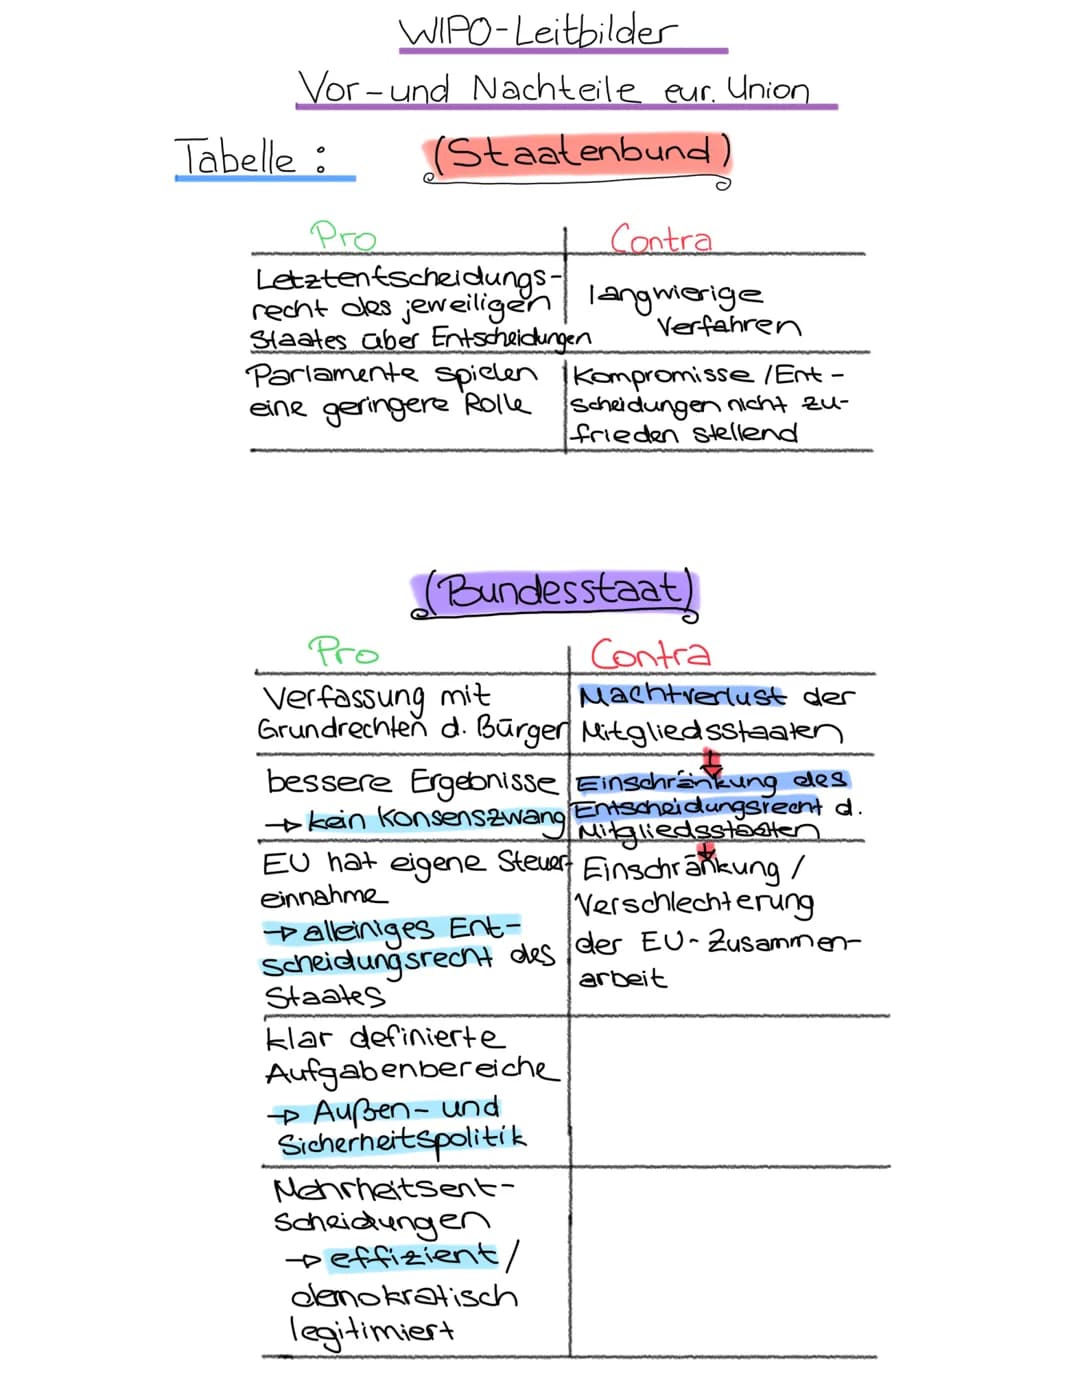 WIPO-Leitbilder
Vor-und Nachteile eur. Union
Tabelle : (Staatenbund)
Pro Contra
Letztentscheidungs-
recht des jeweiligen
Staates über Entscheidungen
langwierige
Verfahren
Parlamente spielen
eine geringere Rolle
Kompromisse / Ent-
scheidungen nicht zu-
frieden stellend
(Bundesstaat)
Pro Contra
Verfassung mit
Grundrechten d. Bürger
Machtverlust der
Mitgliedsstaaten
bessere Ergebnisse
→ kein Konsenszwang
Einschränkung des
Entscheidungsrecht d.
Mitgliedsstaaten
EU hat eigene Steuer-
einnahme
→ alleiniges Ent-
scheidungsrecht des
Staates
Einschränkung /
Verschlechterung
der EU-Zusammen-
arbeit
klar definierte
Aufgabenbereiche
→ Außen- und
Sicherheitspolitik
Mehrheitsent-
scheidungen
→ effizient /
demokratisch
legitimiert